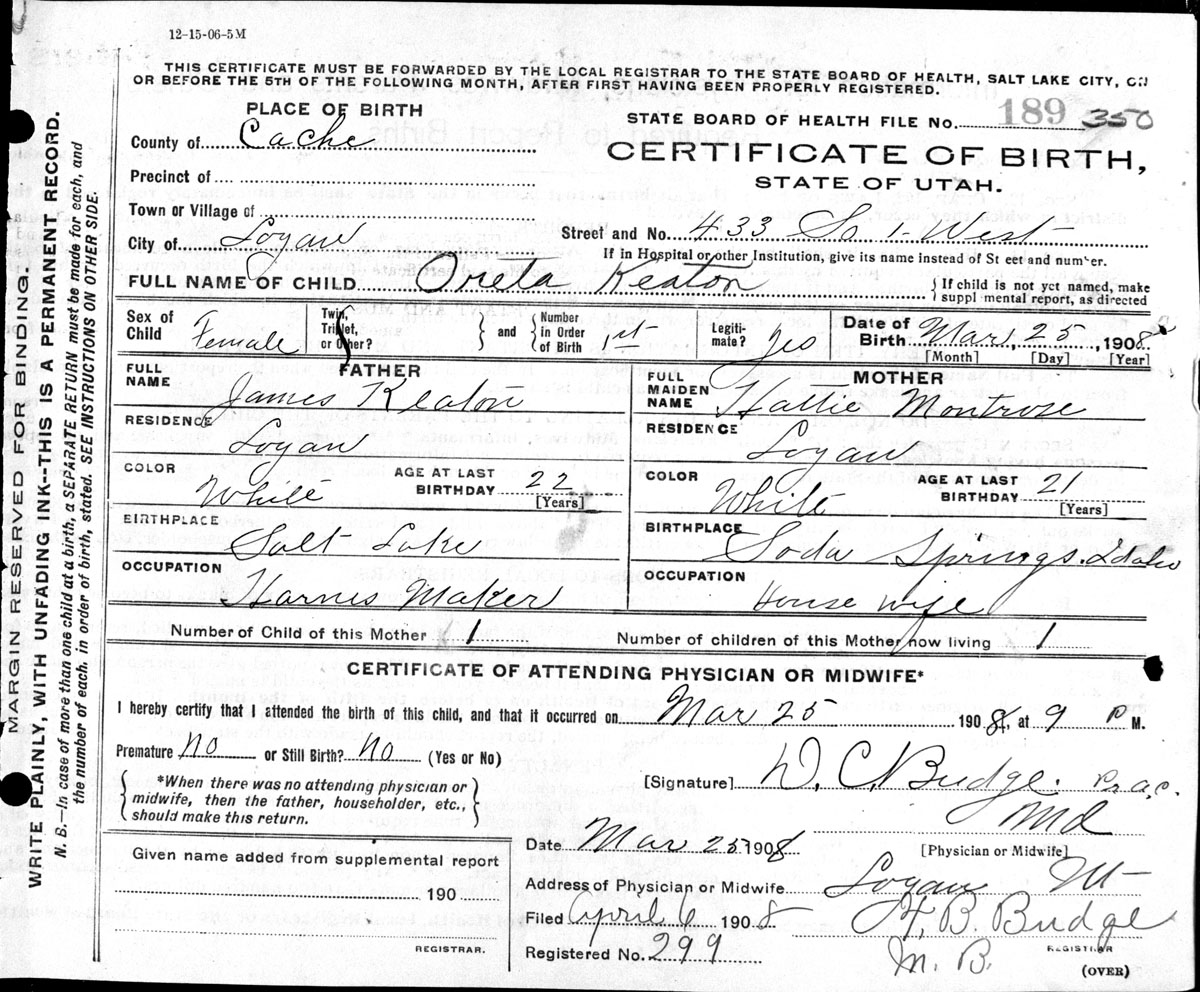 12-15-06-5M
THIS CERTIFICATE MUST BE FORWARDED BY THE LOCAL REGISTRAR TO THE STATE BOARD OF HEALTH, SALT LAKE CITY, ON
OR BEFORE THE 5TH OF THE FOLLOWING MONTH, AFTER FIRST HAVING BEEN PROPERLY REGISTERED.
PLACE OF BIRTH
STATE BOARD OF HEALTH FILE No. 189 350
County of Cache
CERTIFICATE OF BIRTH,
STATE OF UTAH.
Precinct of
Town or Village of
Street and No. 433 So 1-West
City of Logan
If in Hospital or other Institution, give its name instead of St eet and number.
FULL NAME OF CHILD Oreta Keaton { If child is not yet named, make
suppl mental report, as directed
Sex of Child Female Twin, Triplet, or Other? } and { Number in Order of Birth 1st Legiti- mate? yes Date of Birth Mar, 25, 1908
[Month] [Day] [Year]
FATHER MOTHER
FULL NAME James Keaton FULL MAIDEN NAME Hattie Montrose
RESIDENCE Logan RESIDENCE Logan
COLOR White AGE AT LAST BIRTHDAY 22 [Years] COLOR White AGE AT LAST BIRTHDAY 21 [Years]
BIRTHPLACE Salt Lake BIRTHPLACE Soda Springs. Idaho
OCCUPATION Harnis Maker OCCUPATION House wife
Number of Child of this Mother 1 Number of children of this Mother now living 1
CERTIFICATE OF ATTENDING PHYSICIAN OR MIDWIFE*
I hereby certify that I attended the birth of this child, and that it occurred on Mar 25 1908, at 9 P M.
Premature No or Still Birth? No (Yes or No)
{ *When there was no attending physician or
midwife, then the father, householder, etc.,
should make this return. }
[Signature] D. C. Budge.
Md
[Physician or Midwife]
Given name added from supplemental report
190
REGISTRAR.
Date Mar 25 1908
Address of Physician or Midwife Logan Ut
Filed April 6 1908 H. B. Budge
REGISTRAR
Registered No. 299 M. B.
(OVER)
MARGIN RESERVED FOR BINDING.
WRITE PLAINLY, WITH UNFADING INK--THIS IS A PERMANENT RECORD.
N. B.—In case of more than one child at a birth, a SEPARATE RETURN must be made for each, and
the number of each, in order of birth, stated. SEE INSTRUCTIONS ON OTHER SIDE.